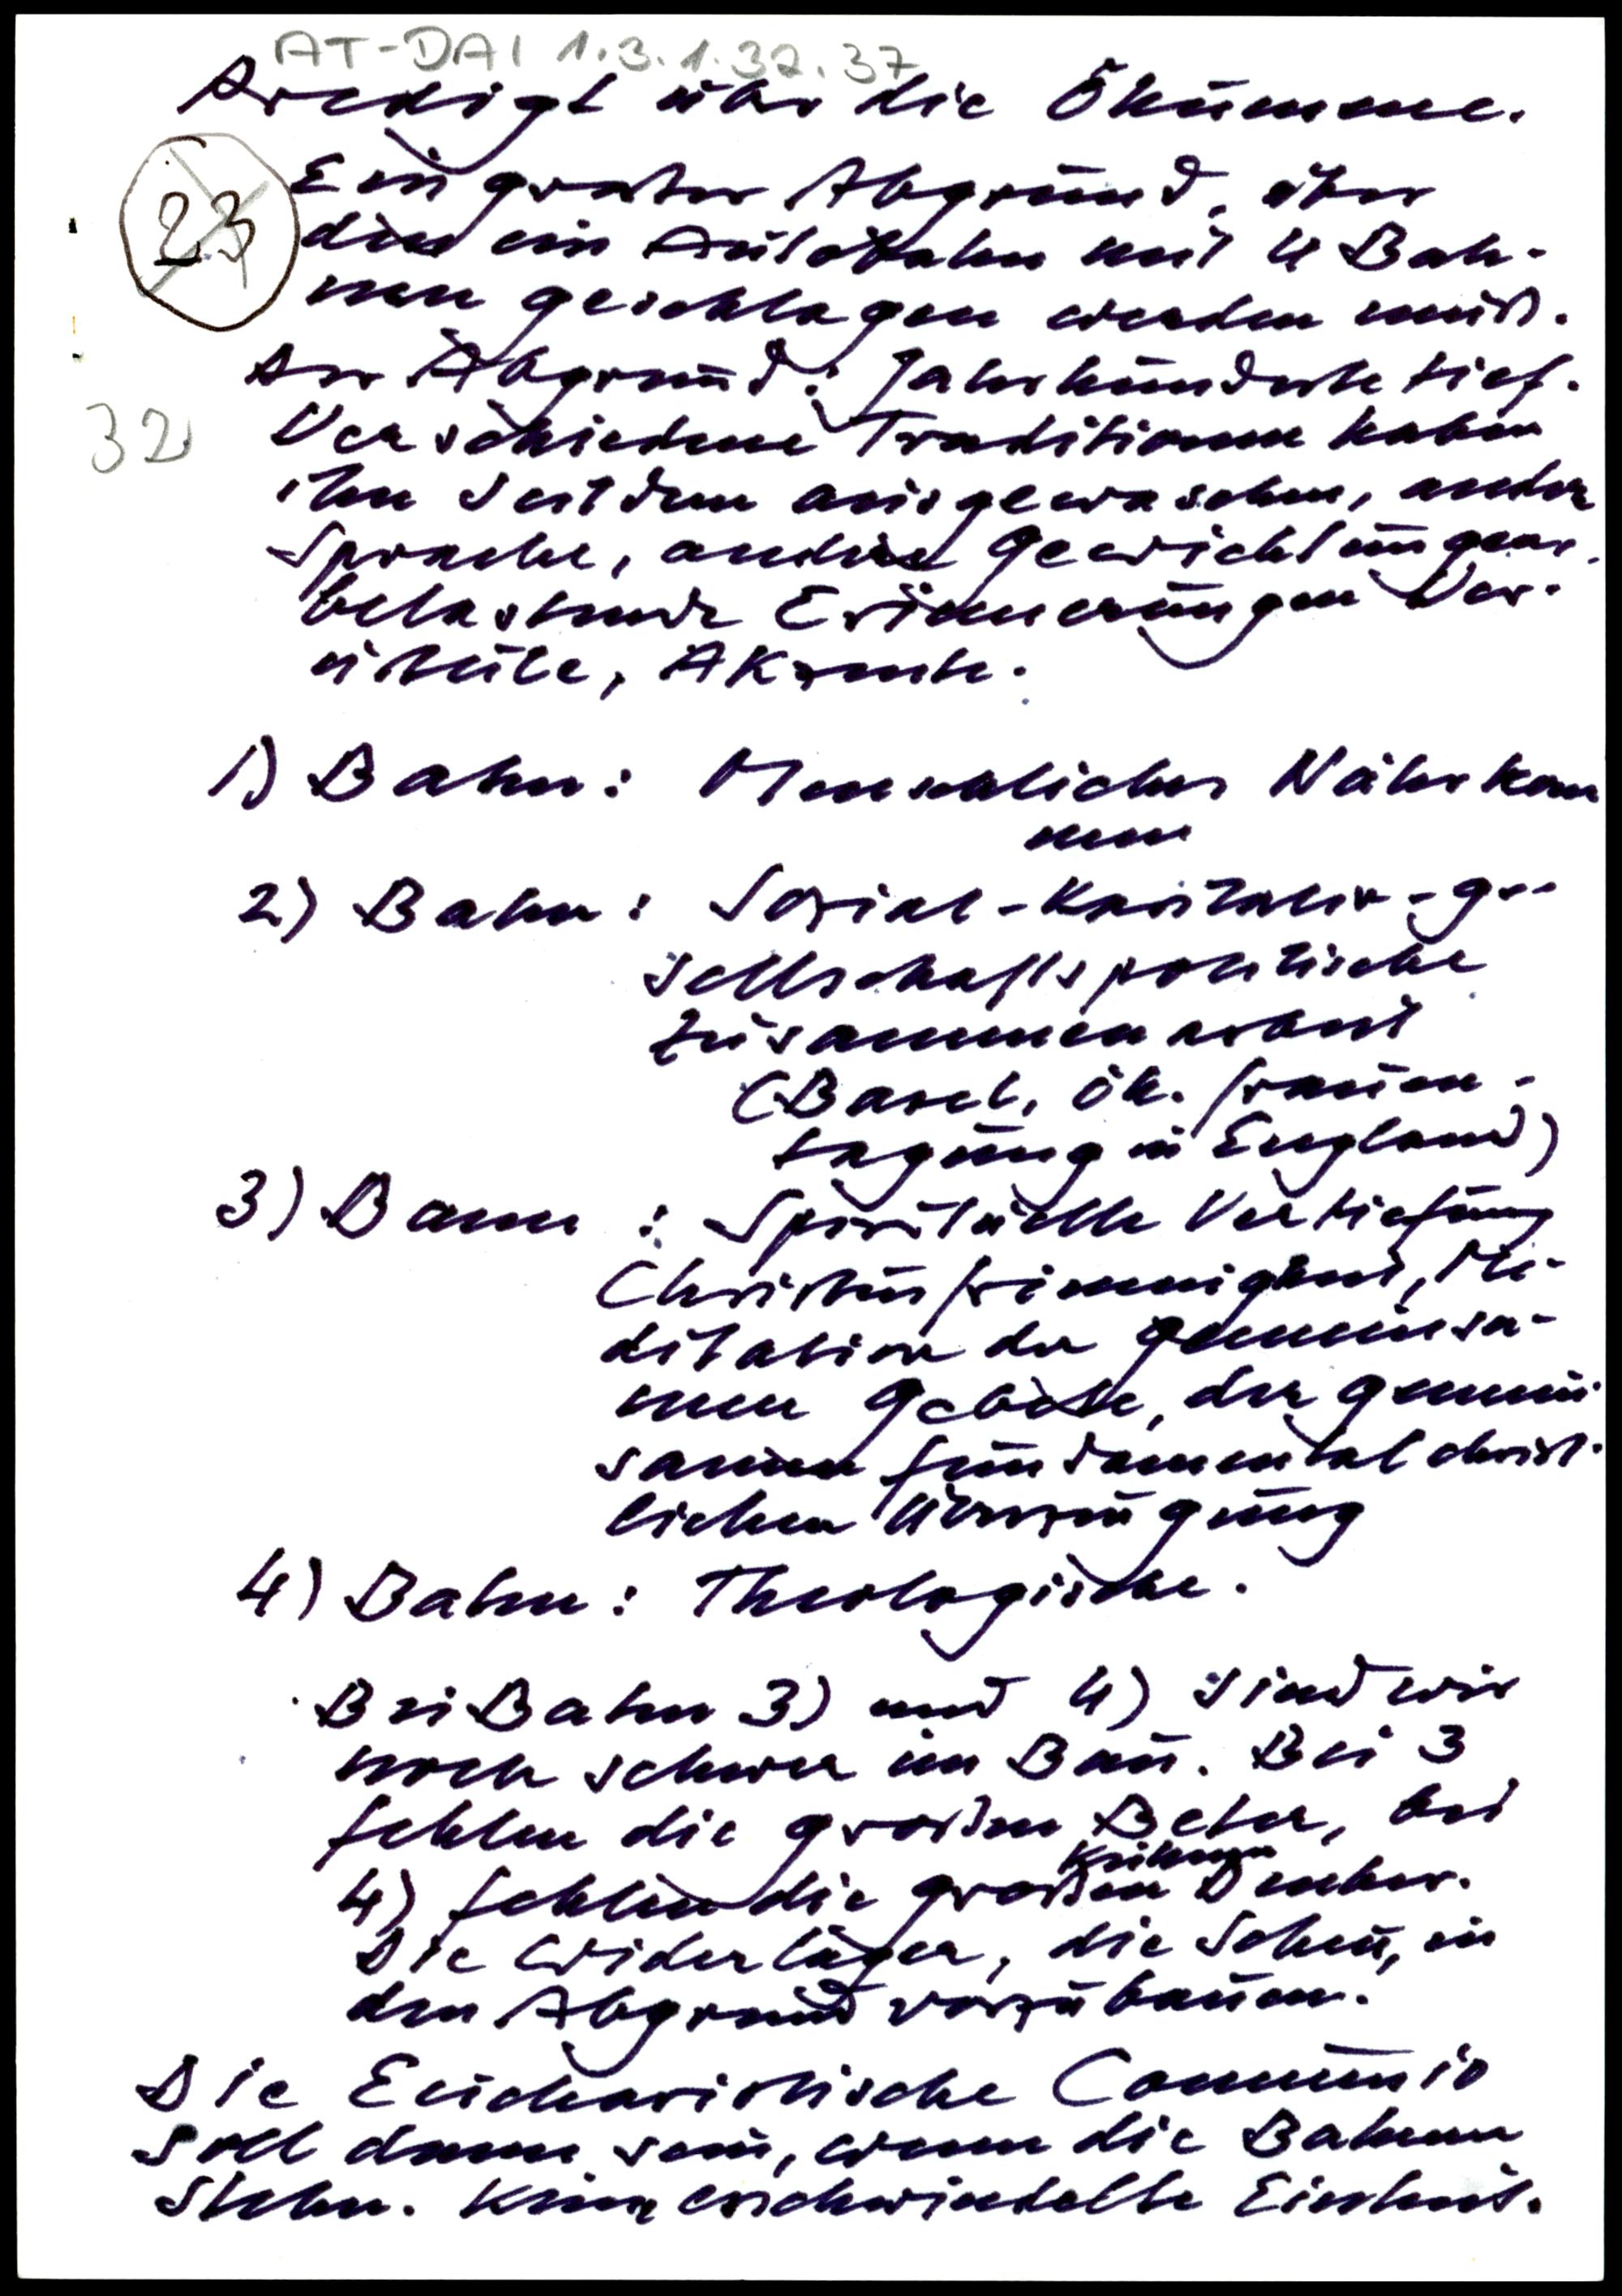 AT-DAI 1.3.1.32.37
Predigt über die Ökumene.
23
Ein großer Abgrund, über
den ein Autobahn mit 4 Bah-
nen geschlagen werden muß.
Der Abgrund: Jahrhunderte tief.
32
Verschiedene Traditionen haben
ihn seitdem ausgewaschen, andere
Sprache, andere Gewichtungen,
belastende Erinnerungen Vor-
urteile, Akzente.
1) Bahn: Menschliches Näherkom
men
2) Bahn: Sozial-Karitativ-ge-
sellschaftspolitische
Zusammenarbeit
(Basel, ök. Frauen-
tagung in England)
3) Bahn: Spirituelle Vertiefung
Christusfrömmigkeit, Me-
ditation der gemeinsa-
men Gebete, der gemein-
samen fundamental christ-
lichen Überzeugung
4) Bahn: Theologische.
Bei Bahn 3) und 4) sind wir
noch schwer im Bau. Bei 3
fehlen die großen Beter, bei
4) fehlen die großen kühnen Denker.
Die Widerläger, die Scheu, in
den Abgrund vorzubauen.
Die Eucharistische Communio
soll dann sein, wenn die Bahnen
stehn. Keine erschwindelte Einheit.